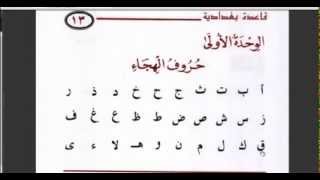 قاعدة بغدادية
١٣
الوِحْدَةُ الأُولَىٰ
حُرُوفُ الْهِجَاءِ
ا ب ت ث ج ح خ د ذ ر
ز س ش ص ض ط ظ ع غ ف
ق ك ل م ن و هـ لا ء ى